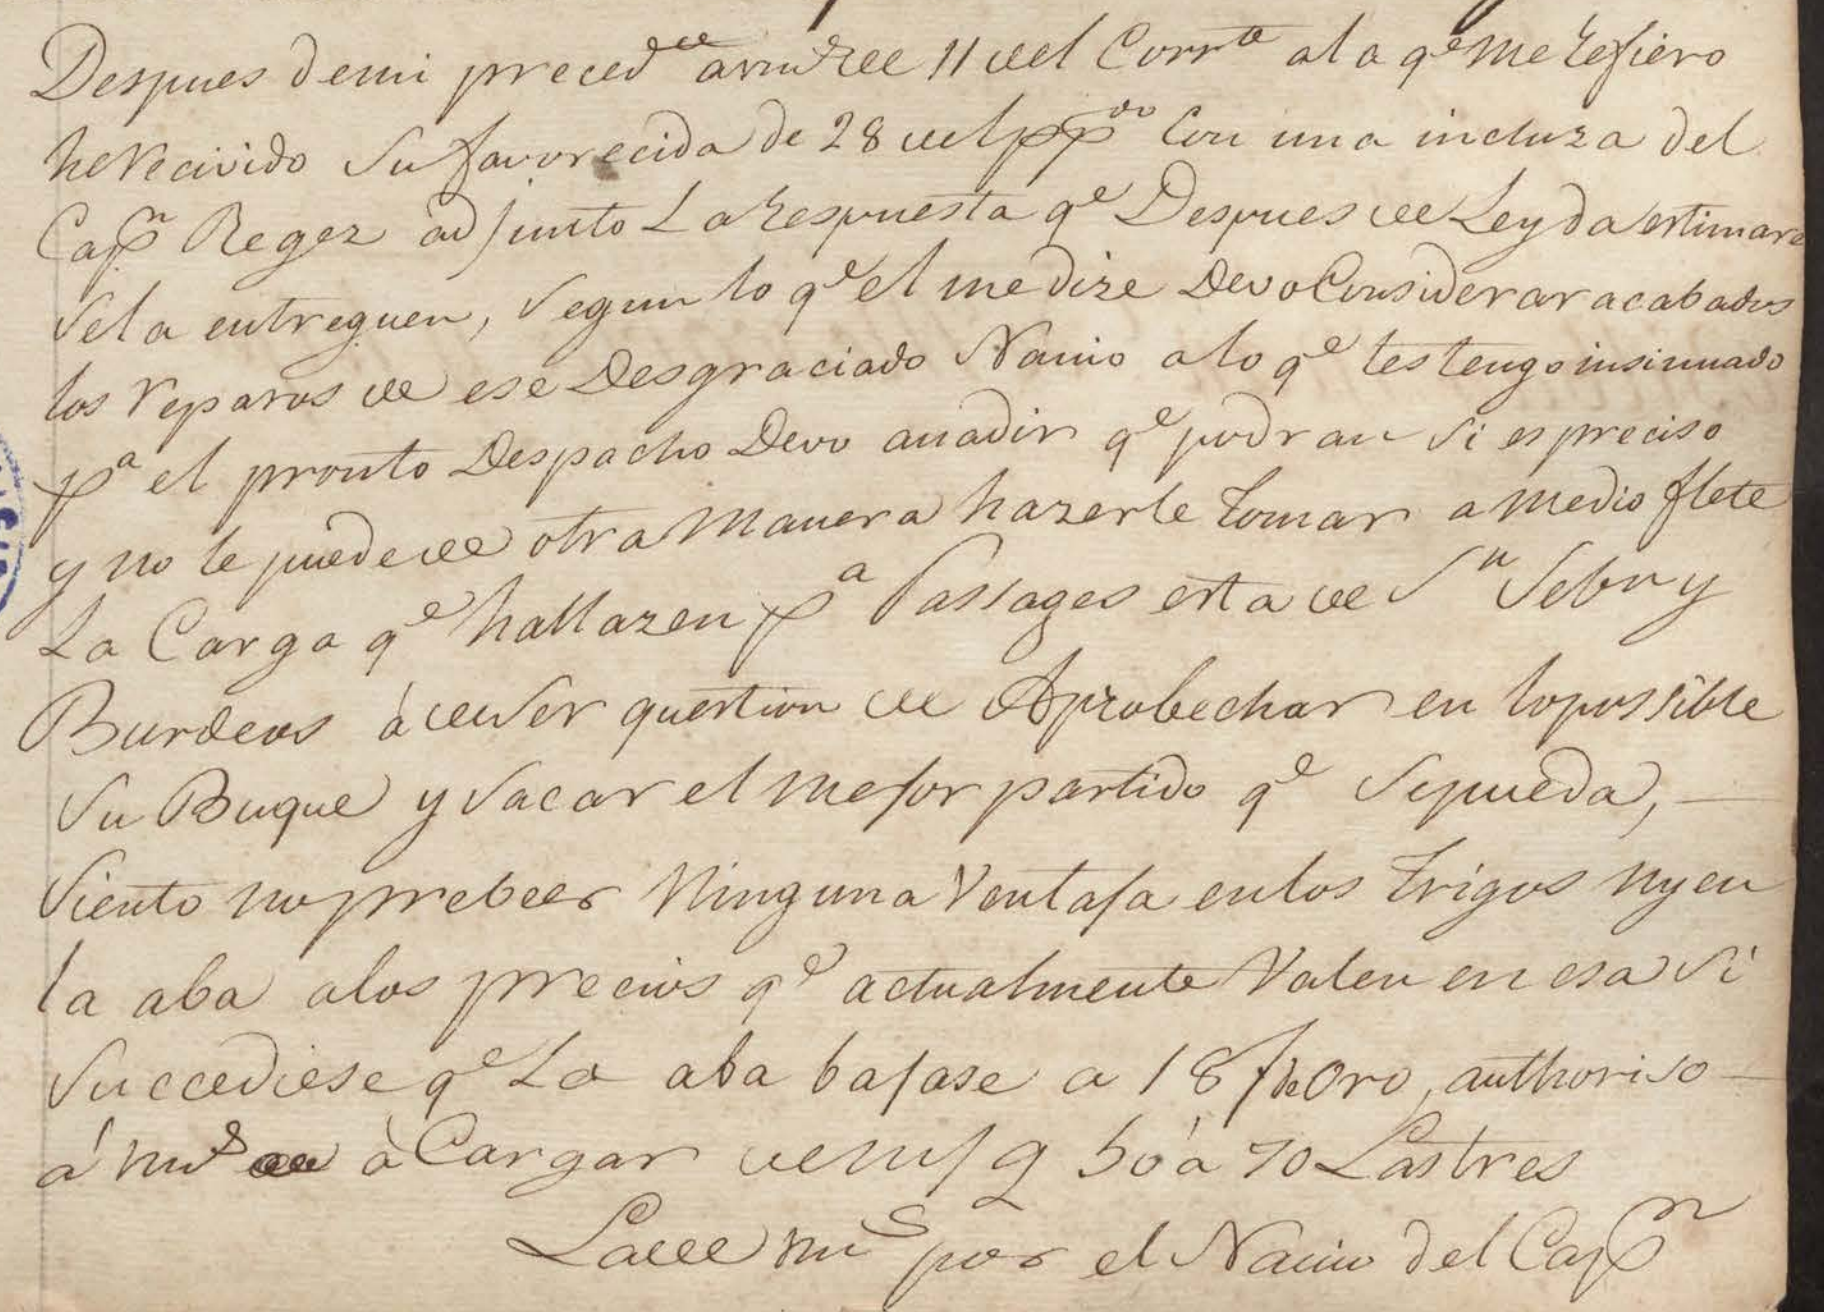 Despues demi preced.te a vm.s de 11 del Corr.te ala q.e me refiero
he Recivido Su favorecida de 28 del pp.do Con una incluza del
Cap.n Regez adjunto La respuesta q.e Despues de Leyda estimare
Sela entreguen, Segun lo q.e el me dize Devo Considerar acabados
los reparos de ese Desgraciado Navio alo q.e les tengo insinuado
p.a el pronto Despacho Devo anadir q.e podran Si es preciso
y no le puede de otra Manera hazerle tomar a medio flete
La Carga q.e hallazen p.a Passages esta de S.n Sebn y
Burdeos à de ser question de Aprobechar en lo possible
Su Buque y Sacar el mejor partido q.e Se pueda,
Siento no prebeer Ninguna Ventaja en los trigos ny en
la aba alos precios q.e actualmente Valen en esa Si
Succediese q.e La aba bajase a 18 Oro, authoriso
á vm.s à Cargar de m/ 50 à 70 Lastres
vm.s por el Navio del Cap.n